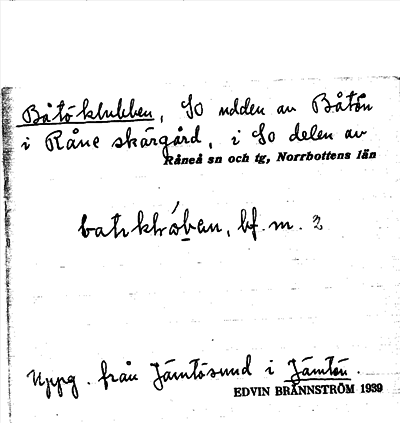 Båtöklubben, SO udden av Båtön
i Råne skärgård, i SO delen av
Råneå sn och tg, Norrbottens län
bf. m. 2
Uppg. från Jämtösund i Jämtön.
EDVIN BRÄNNSTRÖM 1939